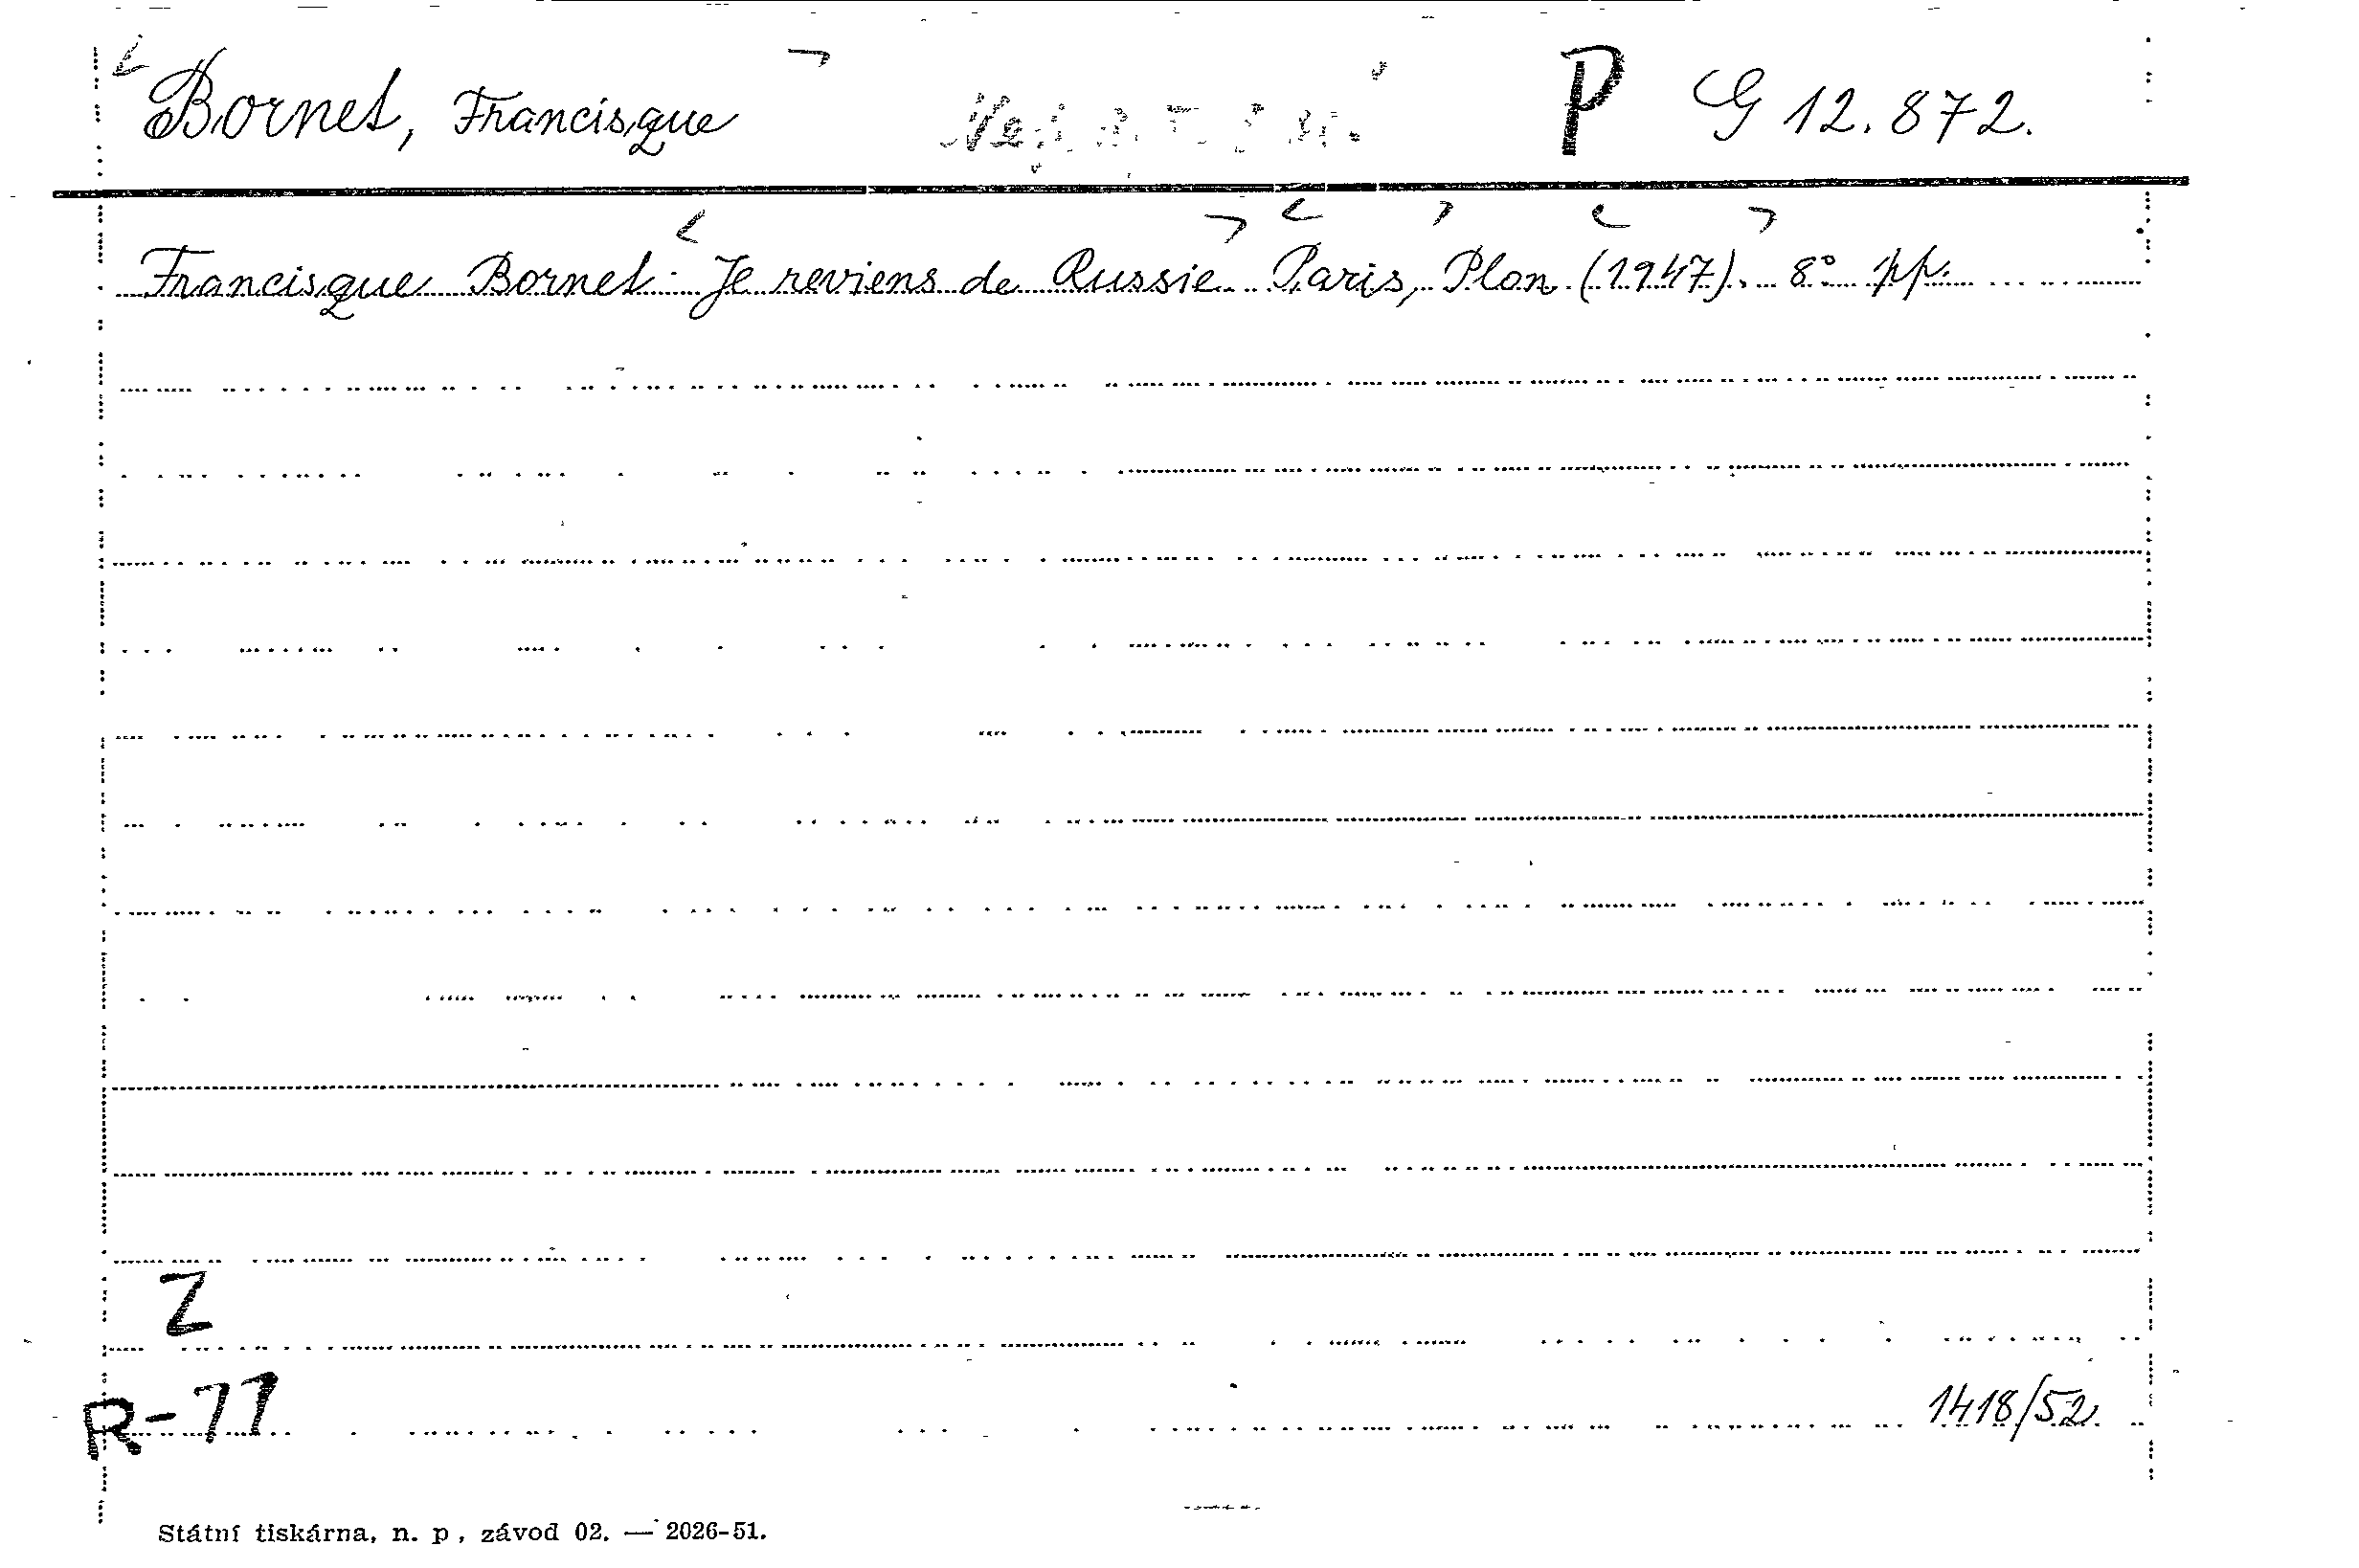 Bornet, Francisque P G 12.872.
Francisque Bornet: Je reviens de Russie. Paris, Plon (1947). 8° pp.
Z
R-77
1418/52
Státní tiskárna, n. p., závod 02. — 2026-51.